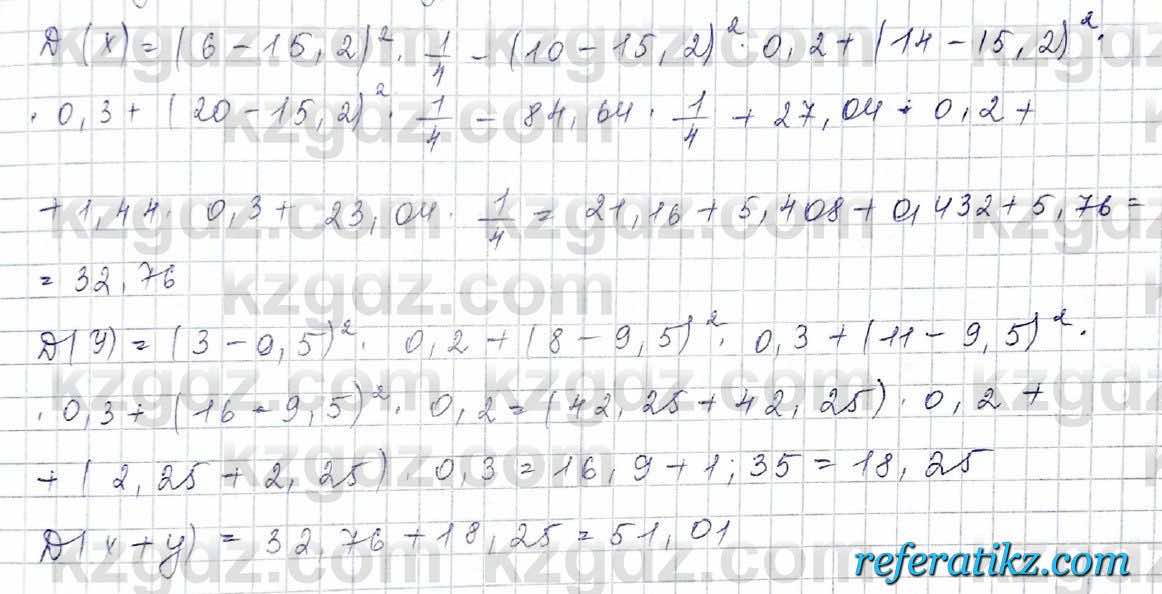 D(x) = (6 - 15,2)² · 1/4 - (10 - 15,2)² · 0,2 + (14 - 15,2)² ·
· 0,3 + (20 - 15,2)² · 1/4 - 84,64 · 1/4 + 27,04 · 0,2 +
+ 1,44 · 0,3 + 23,04 · 1/4 = 21,16 + 5,408 + 0,432 + 5,76 =
= 32,76
D(y) = (3 - 0,5)² · 0,2 + (8 - 9,5)² · 0,3 + (11 - 9,5)² ·
· 0,3 + (16 - 9,5)² · 0,2 = (42,25 + 42,25) · 0,2 +
+ (2,25 + 2,25) · 0,3 = 16,9 + 1,35 = 18,25
D(x + y) = 32,76 + 18,25 = 51,01
referatikz.com
kzgdz.com